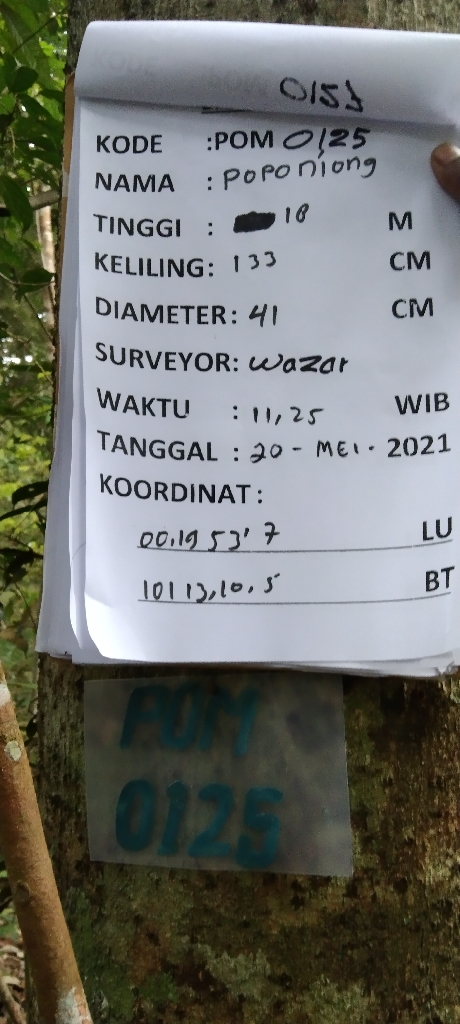 0153
KODE :POM 0125
NAMA : poponiong
TINGGI : 18 M
KELILING: 133 CM
DIAMETER: 41 CM
SURVEYOR: wazar
WAKTU : 11,25 WIB
TANGGAL : 20 - MEI - 2021
KOORDINAT :
00.19 53' 7 LU
101 13,10.5 BT
POM
0125